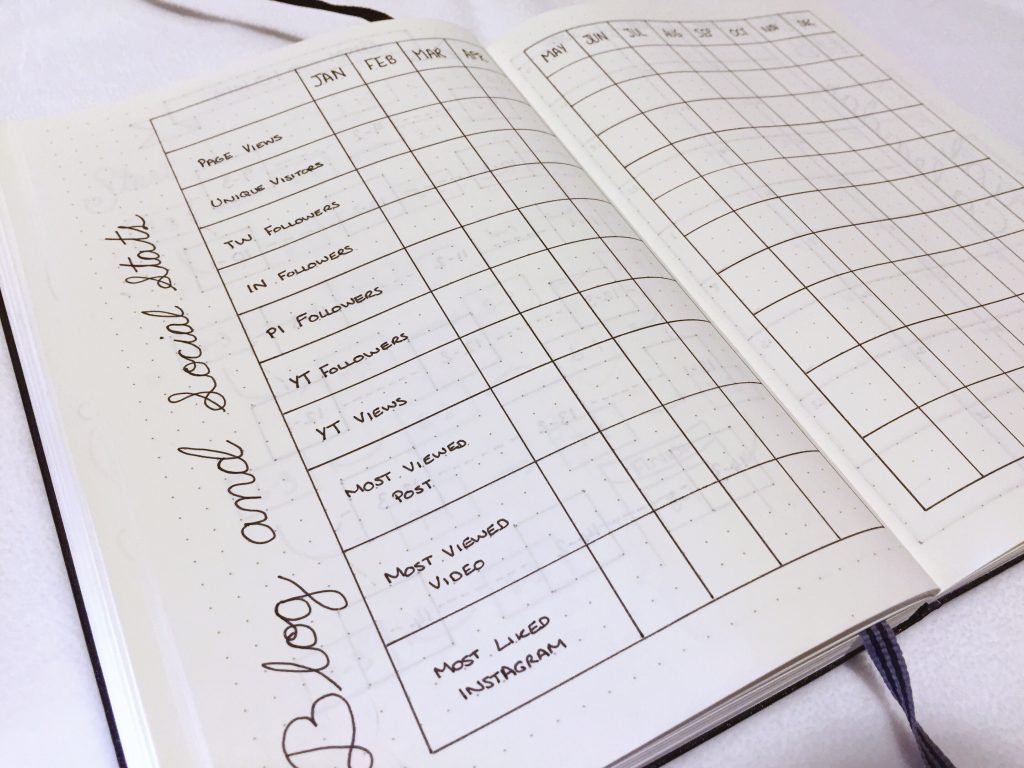 Blog and Social Stats
JAN FEB MAR APR MAY JUN JUL AUG SEP OCT NOV DEC
PAGE VIEWS
UNIQUE VISITORS
TW FOLLOWERS
IN FOLLOWERS
PI FOLLOWERS
YT FOLLOWERS
YT VIEWS
MOST VIEWED
POST
MOST VIEWED
VIDEO
MOST LIKED
INSTAGRAM